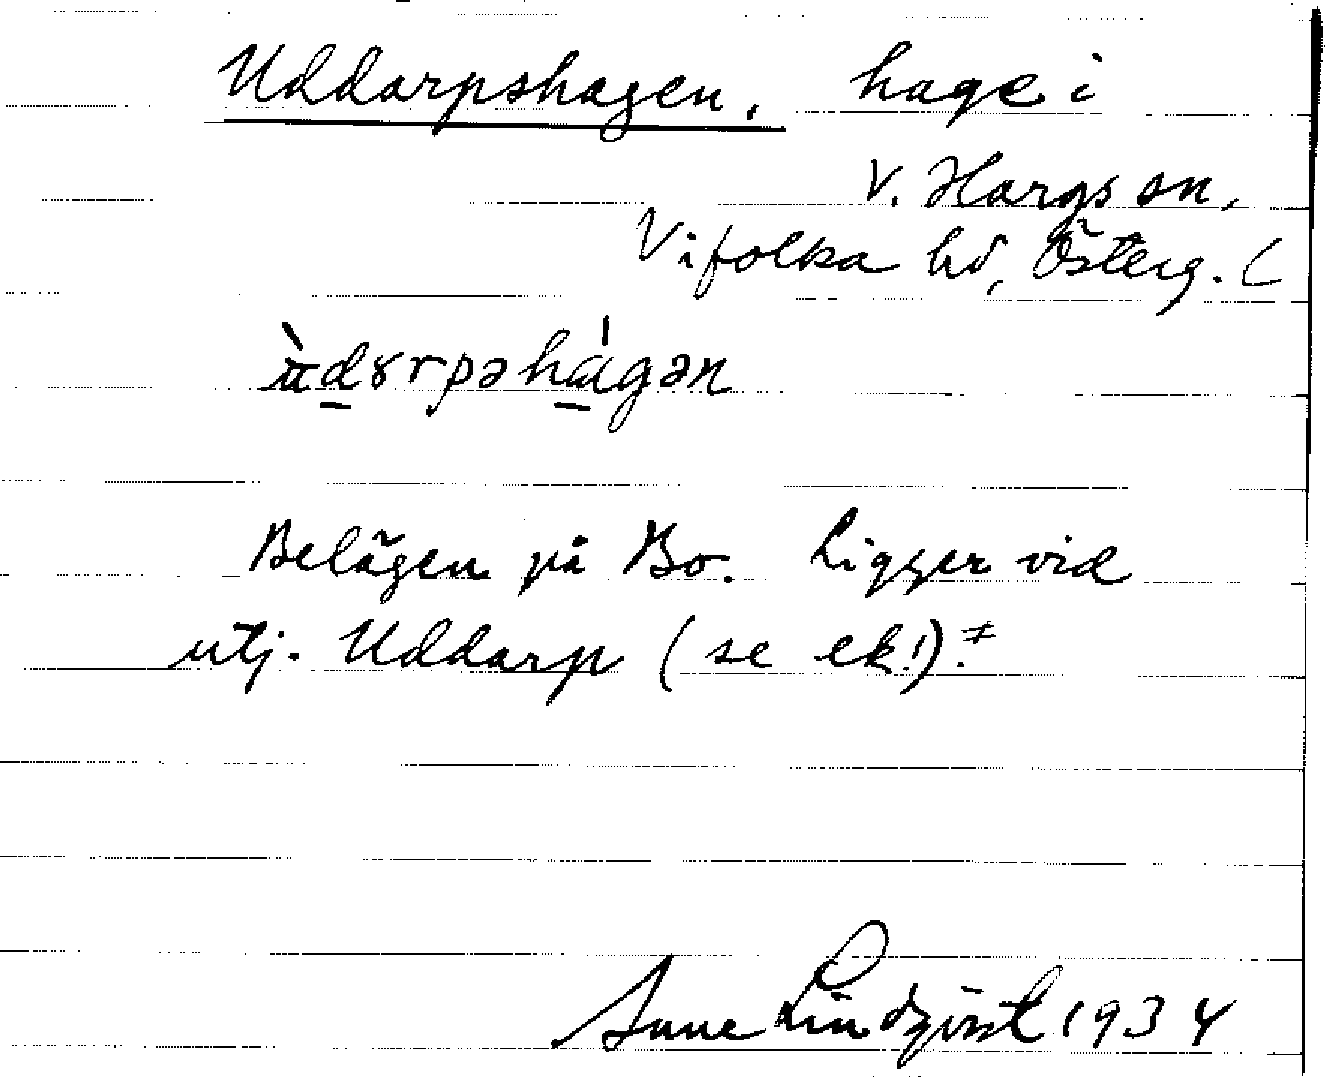 Uddarpshagen. hage i
V. Hargs sn,
Vifolka hd, Österg. (
Belägen på Bo. Ligger vid
utj. Uddarp (se ek!).
Sune Lindqvist 1934